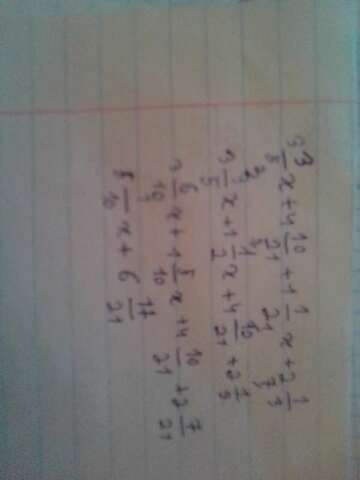 3 3/5 x + 4 10/21 + 1 1/2 x + 2 1/3
3 3/5 x + 1 1/2 x + 4 10/21 + 2 1/3
3 6/10 x + 1 5/10 x + 4 10/21 + 2 7/21
5 1/10 x + 6 17/21